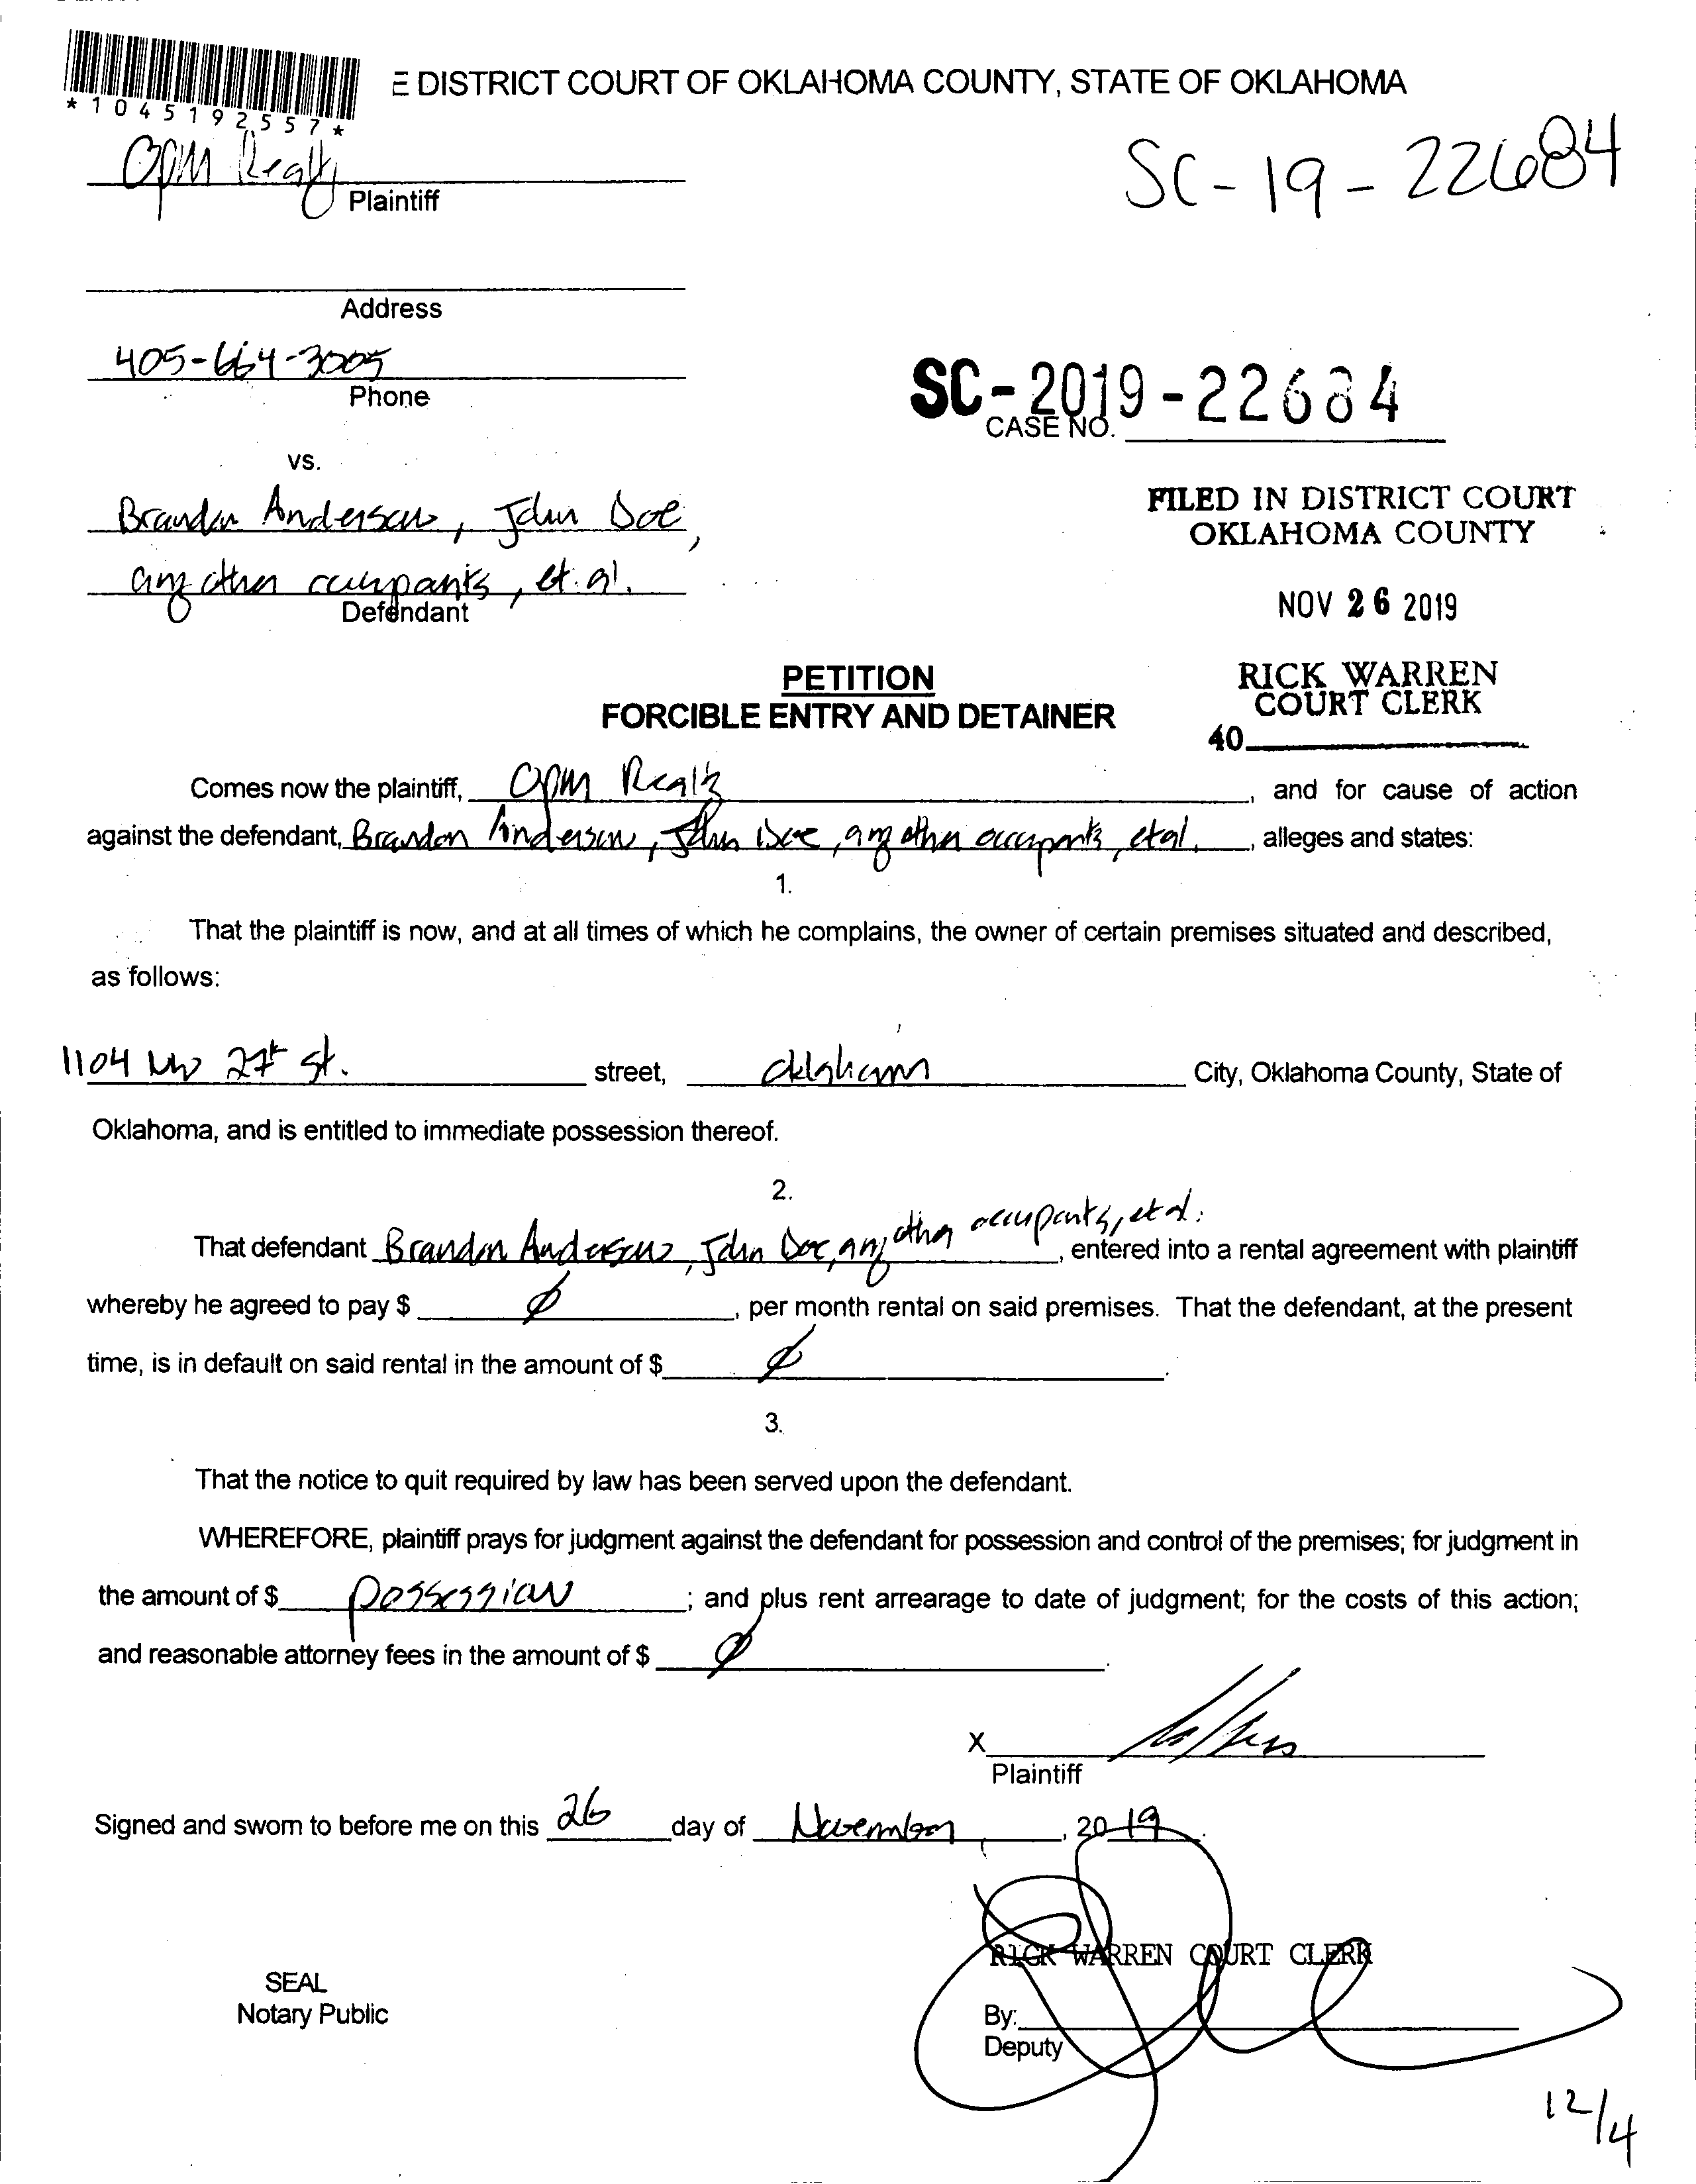 E DISTRICT COURT OF OKLAHOMA COUNTY, STATE OF OKLAHOMA
*1045192557*
OPM Realty
Plaintiff
SC-19-22684
Address
405-664-3005
Phone
SC-2019-22684
CASE NO.
vs.
Brandon Anderson, John Doe,
any other occupants, et. al.
Defendant
FILED IN DISTRICT COURT
OKLAHOMA COUNTY
NOV 26 2019
RICK WARREN
COURT CLERK
40
PETITION
FORCIBLE ENTRY AND DETAINER
Comes now the plaintiff, OPM Realty, and for cause of action
against the defendant, Brandon Anderson, John Doe, any other occupants, et al., alleges and states:
1.
That the plaintiff is now, and at all times of which he complains, the owner of certain premises situated and described,
as follows:
1104 NW St. street, Oklahoma City, Oklahoma County, State of
Oklahoma, and is entitled to immediate possession thereof.
2.
That defendant Brandon Anderson, John Doe, any other occupants, et al., entered into a rental agreement with plaintiff
whereby he agreed to pay $ Ø, per month rental on said premises. That the defendant, at the present
time, is in default on said rental in the amount of $ Ø.
3.
That the notice to quit required by law has been served upon the defendant.
WHEREFORE, plaintiff prays for judgment against the defendant for possession and control of the premises; for judgment in
the amount of $ possession; and plus rent arrearage to date of judgment; for the costs of this action;
and reasonable attorney fees in the amount of $ Ø.
X
Plaintiff
Signed and sworn to before me on this 26 day of November, 20 19.
RICK WARREN COURT CLERK
SEAL
Notary Public
By:
Deputy
12/4